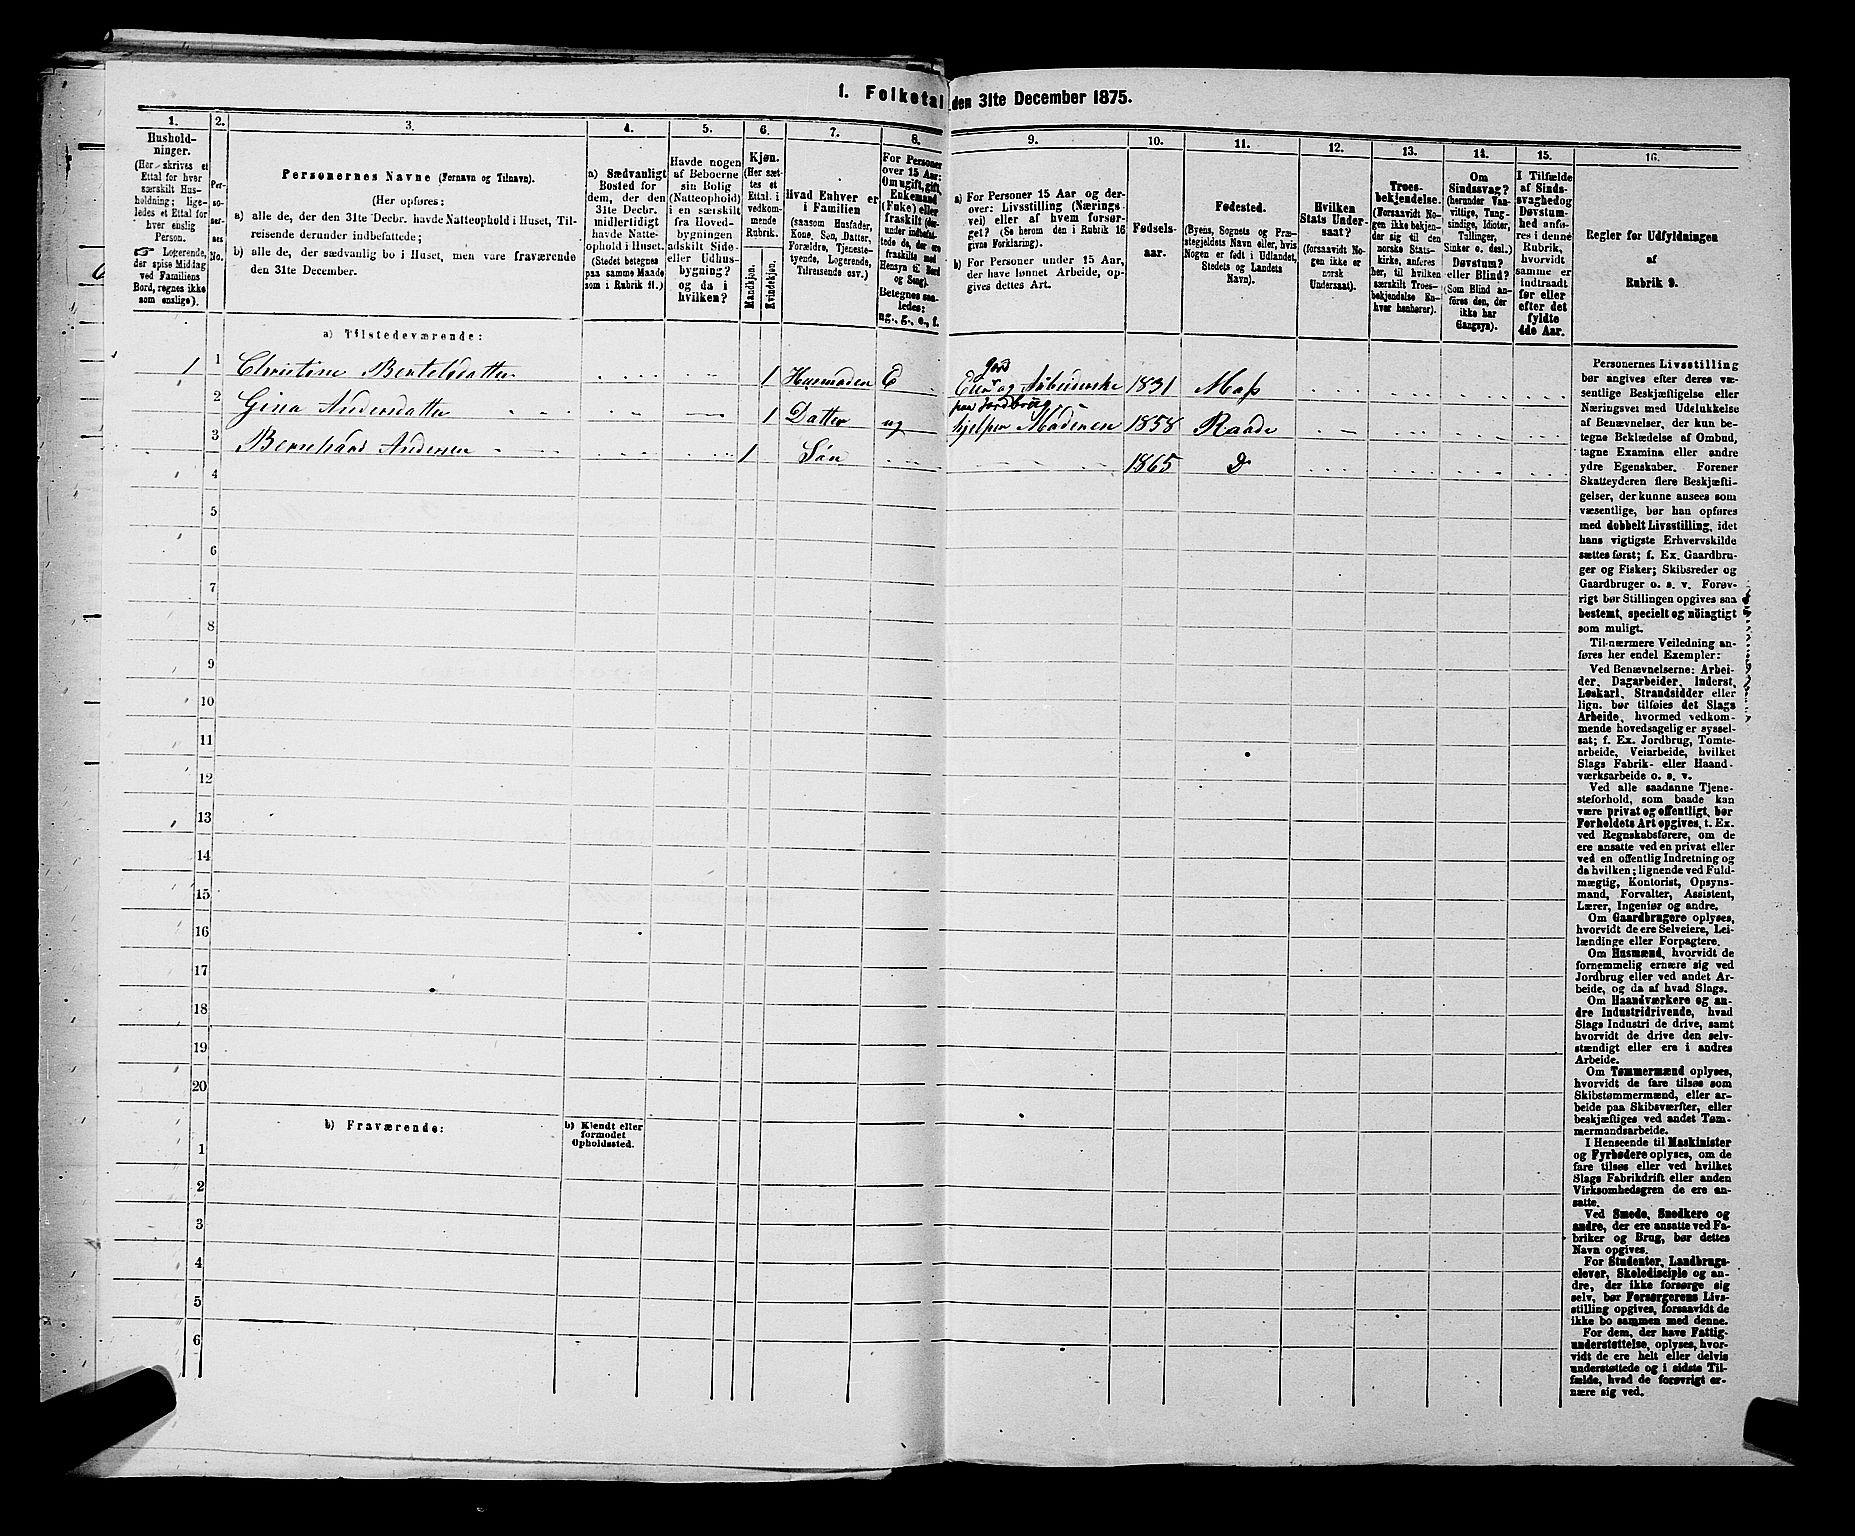 1. Folketal den 31te December 1875.
1.
Hushold-
ninger.
(Her skrives et
Ettal for hver
særskilt Hus-
holdning; lige-
ledes et Ettal for
hver enslig
Person.
☞ Logerende,
der spise Middag
ved Familiens
Bord, regnes ikke
som enslige).
2.
Per-
so-
ner-
nes
No.
3.
Personernes Navne (Fornavn og Tilnavn).
(Her opføres:
a) alle de, der den 31te Decbr. havde Natteophold i Huset, Til-
reisende derunder indbefattede;
b) alle de, der sædvanlig bo i Huset, men vare fraværende
den 31te December.
4.
a) Sædvanligt
Bosted for
dem, der den
31te Decbr.
midlertidigt
havde Natte-
ophold i Huset.
(Stedet betegnes
paa samme Maade
som i Rubrik 11.)
5.
Havde nogen
af Beboerne
sin Bolig
(Natteophold)
i en særskilt
fra Hoved-
bygningen
adskilt Side-
eller Udhus-
bygning?
og da i
hvilken?
6.
Kjøn.
(Her sæt-
tes et
Ettal. i
vedkom-
mende
Rubrik.
Mandkjøn.
Kvindekjøn.
7.
Hvad Enhver er
i Familien
(saasom Husfader,
Kone, Søn, Datter,
Forældre, Tjeneste-
tyende, Logerende,
Tilreisende osv.)
8.
For Personer
over 15 Aar:
Om ugift, gift,
Enkemand
(Enke) eller
fraskilt (der-
under indbefat-
tede de, der ere
fraskilte med
Hensyn til Bord
og Seng).
Betegnes saa-
ledes:
ug., g., e., f.
9.
a) For Personer 15 Aar og der-
over: Livsstilling (Nærings-
vei) eller af hvem forsør-
get? (Se herom den i Rubrik 16
givne Forklaring).
b) For Personer under 15 Aar,
der have lønnet Arbeide, op-
gives dettes Art.
10.
Fødsels-
aar.
11.
Fødested.
(Byens, Sognets og Præ-
stegjeldets Navn eller, hvis
Nogen er født i Udlandet,
Stedets og Landets
Navn).
12.
Hvilken
Stats Under-
saat?
(forsaavidt No-
gen ikke er
norsk
Undersaat).
13.
Troes-
bekjendelse.
(Forsaavidt No-
gen ikke bekjen-
der sig til den
norske Stats-
kirke, anføres
her, til hvilken
særskilt Troes-
bekjendelse En-
hver henhører).
14.
Om
Sindssvag?
(herunder Van-
vittige, Tung-
sindige, Idioter,
Tullinger,
Sinker o. desl.)
Døvstum?
eller Blind?
(Som Blind an-
føres den, der
ikke har
Gangsyn).
15.
I Tilfælde
af Sinds-
svaghed og
Døvstum-
hed anfø-
res i denne
Rubrik,
hvorvidt
samme er
indtraadt
før eller
efter det
fyldte
4de Aar.
16.
Regler for Udfyldningen
af
Rubrik 9.
a) Tilstedeværende:
1 1 Christine Bertelsdatter 1 Husmoden E 1831 Moss
2 Gina Andersdatter 1 Datter ug hjelper Moderen 1858 Raade
3 Bernhard Andersen 1 Søn 1865 Do
4
5
6
7
8
9
10
11
12
13
14
15
16
17
18
19
20
b) Fraværende:
b) Kjendt eller
formodet
Opholdssted.
1
2
3
4
5
6
Personernes Livsstilling
bør angives efter deres væ-
sentlige Beskjæftigelse eller
Næringsvei med Udelukkelse
af Benævnelser, der kun be-
tegne Beklædelse af Ombud,
tagne Examina eller andre
ydre Egenskaber. Forener
Skatteyderen flere Beskjæfti-
gelser, der kunne ansees som
væsentlige, bør han opføres
med dobbelt Livsstilling, idet
hans vigtigste Erhvervskilde
sættes først; f. Ex. Gaardbru-
ger og Fisker; Skibsreder og
Gaardbruger o. s. v. Forøv-
rigt bør Stillingen opgives saa
bestemt, specielt og nöiagtigt
som muligt.
Til nærmere Veiledning an-
føres her endel Exempler:
Ved Benævnelserne: Arbei-
der, Dagarbeider, Inderst,
Løskarl, Strandsidder eller
lign. bør tilføies det Slags
Arbeide, hvormed vedkom-
mende hovedsagelig er syssel-
sat; f. Ex. Jordbrug, Tomte-
arbeide, Veiarbeide, hvilket
Slags Fabrik- eller Haand-
værksarbeide o. s. v.
Ved alle saadanne Tjene-
steforhold, som baade kan
være privat og offentligt, bør
Forholdets Art opgives, t. Ex.
ved Regnskabsførere, om de
ere ansatte ved en privat eller
ved en offentlig Indretning og
da hvilken; lignende ved Fuld-
mægtig, Kontorist, Opsyns-
mand, Forvalter, Assistent,
Lærer, Ingeniør og andre.
Om Gaardbrugere oplyses,
hvorvidt de ere Selveiere, Lei-
lændinge eller Forpagtere.
Om Husmænd, hvorvidt de
fornemmelig ernære sig ved
Jordbrug eller ved andet Ar-
beide, og da af hvad Slags.
Om Haandværkere og an-
dre Industridrivende, hvad
Slags Industri de drive, samt
hvorvidt de drive den selv-
stændigt eller ere i andres
Arbeide.
Om Tømmermænd oplyses,
hvorvidt de fare tilsøs som
Skibstømmermænd, eller ar-
beide paa Skibsværfter, eller
beskjæftiges ved andet Tøm-
mermandsarbeide.
I Henseende til Maskinister
og Fyrbødere oplyses, om de
fare tilsøs eller ved hvilket
Slags Fabrikdrift eller anden
Virksomhedsgren de ere an-
satte.
Ved Smede, Snedkere og
andre, der ere ansatte ved Fa-
briker og Brug, bør dettes
Navn opgives.
For Studenter, Landbrugs-
elever, Skoledisciple og an-
dre, der ikke forsørge sig
selv, bør Forsørgerens Livs-
stilling opgives, forsaavidt de
ikke bo sammen med denne.
For dem, der have Fattig-
understøttelse, oplyses, hvor-
vidt de ere helt eller delvis
understøttede og i sidste Til-
fælde, hvad de forøvrigt er-
nære sig ved.